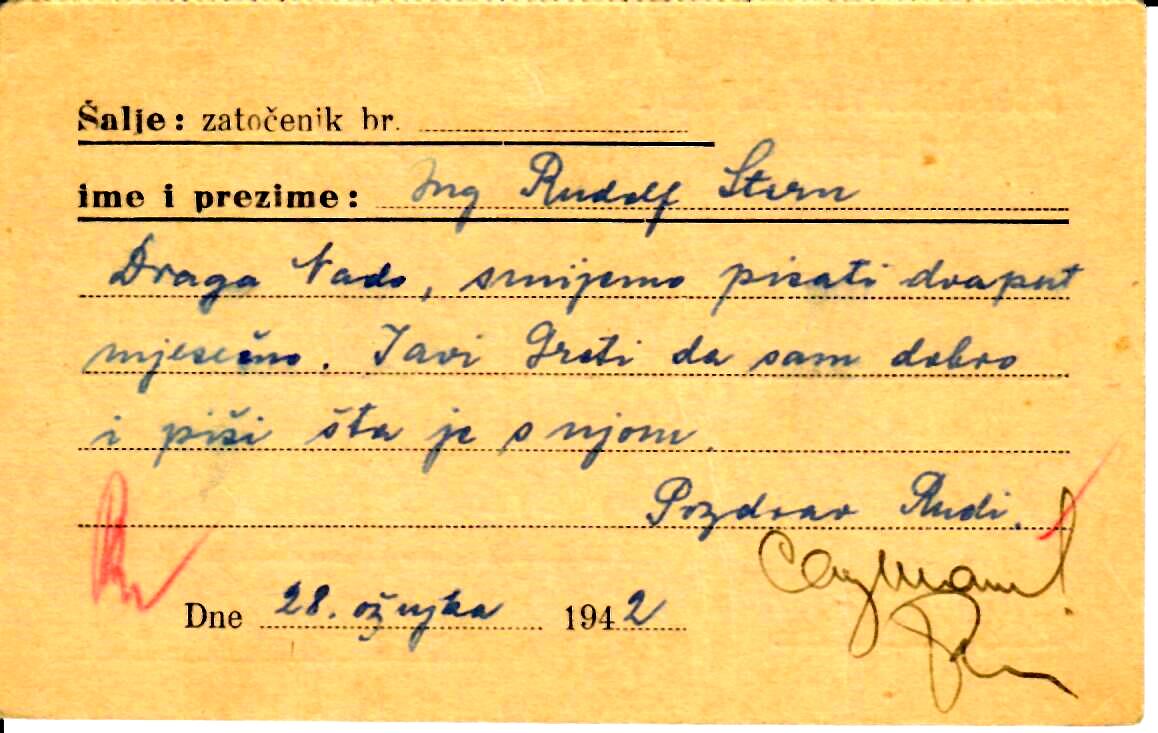 Šalje: zatočenik br.
ime i prezime: Ing Rudolf Stern
Draga Nado, smijemo pisati dvaput
mjesečno. Javi Greti da sam dobro
i piši šta je s njom.
Pozdrav Rudi.
Dne 28. ožujka 1942